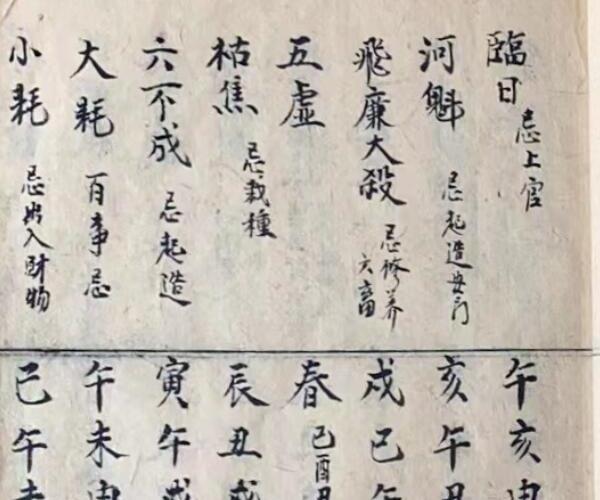 臨日 忌上官
河魁 忌起造安門
飛廉大殺 忌修养六畜
五虛
枯焦 忌栽種
六不成 忌起造
大耗 百事忌
小耗 忌出入財物
午亥申
亥午丑
戌巳午
春 巳酉丑
辰丑戌
寅午戌
午未申
巳午未